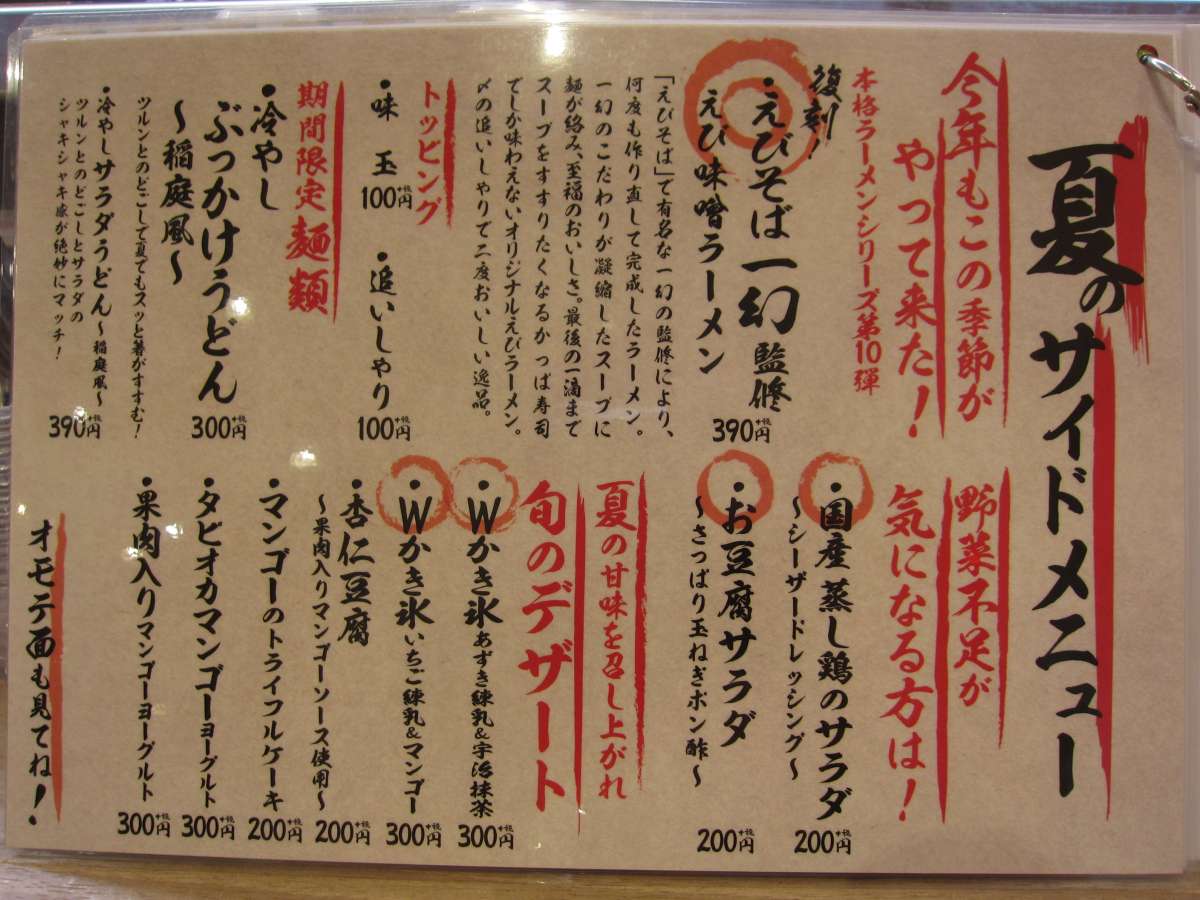 夏のサイドメニュー
今年もこの季節が
やって来た！
本格ラーメンシリーズ第10弾
復刻！
・えびそば一幻監修
えび味噌ラーメン
390円+税
「えびそば」で有名な一幻の監修により、
何度も作り直して完成したラーメン。
一幻のこだわりが凝縮したスープに
麺が絡み、至福のおいしさ。最後の一滴まで
スープをすすりたくなるかっぱ寿司
でしか味わえないオリジナルえびラーメン。
〆の追いしゃりで二度おいしい逸品。
トッピング
・味玉
100円+税
・追いしゃり
100円+税
期間限定麺類
・冷やし
ぶっかけうどん
〜稲庭風〜
300円+税
ツルンとのどごしで夏でもスッと箸がすすむ！
・冷やしサラダうどん〜稲庭風〜
390円+税
ツルンとのどごしとサラダの
シャキシャキ感が絶妙にマッチ！
野菜不足が
気になる方は！
・国産蒸し鶏のサラダ
〜シーザードレッシング〜
200円+税
・お豆腐サラダ
〜さっぱり玉ねぎポン酢〜
200円+税
夏の甘味を召し上がれ
旬のデザート
・Wかき氷あずき練乳&宇治抹茶
300円+税
・Wかき氷いちご練乳&マンゴー
300円+税
・杏仁豆腐
〜果肉入りマンゴーソース使用〜
200円+税
・マンゴーのトライフルケーキ
200円+税
・タピオカマンゴーヨーグルト
300円+税
・果肉入りマンゴーヨーグルト
300円+税
オモテ面も見てね！